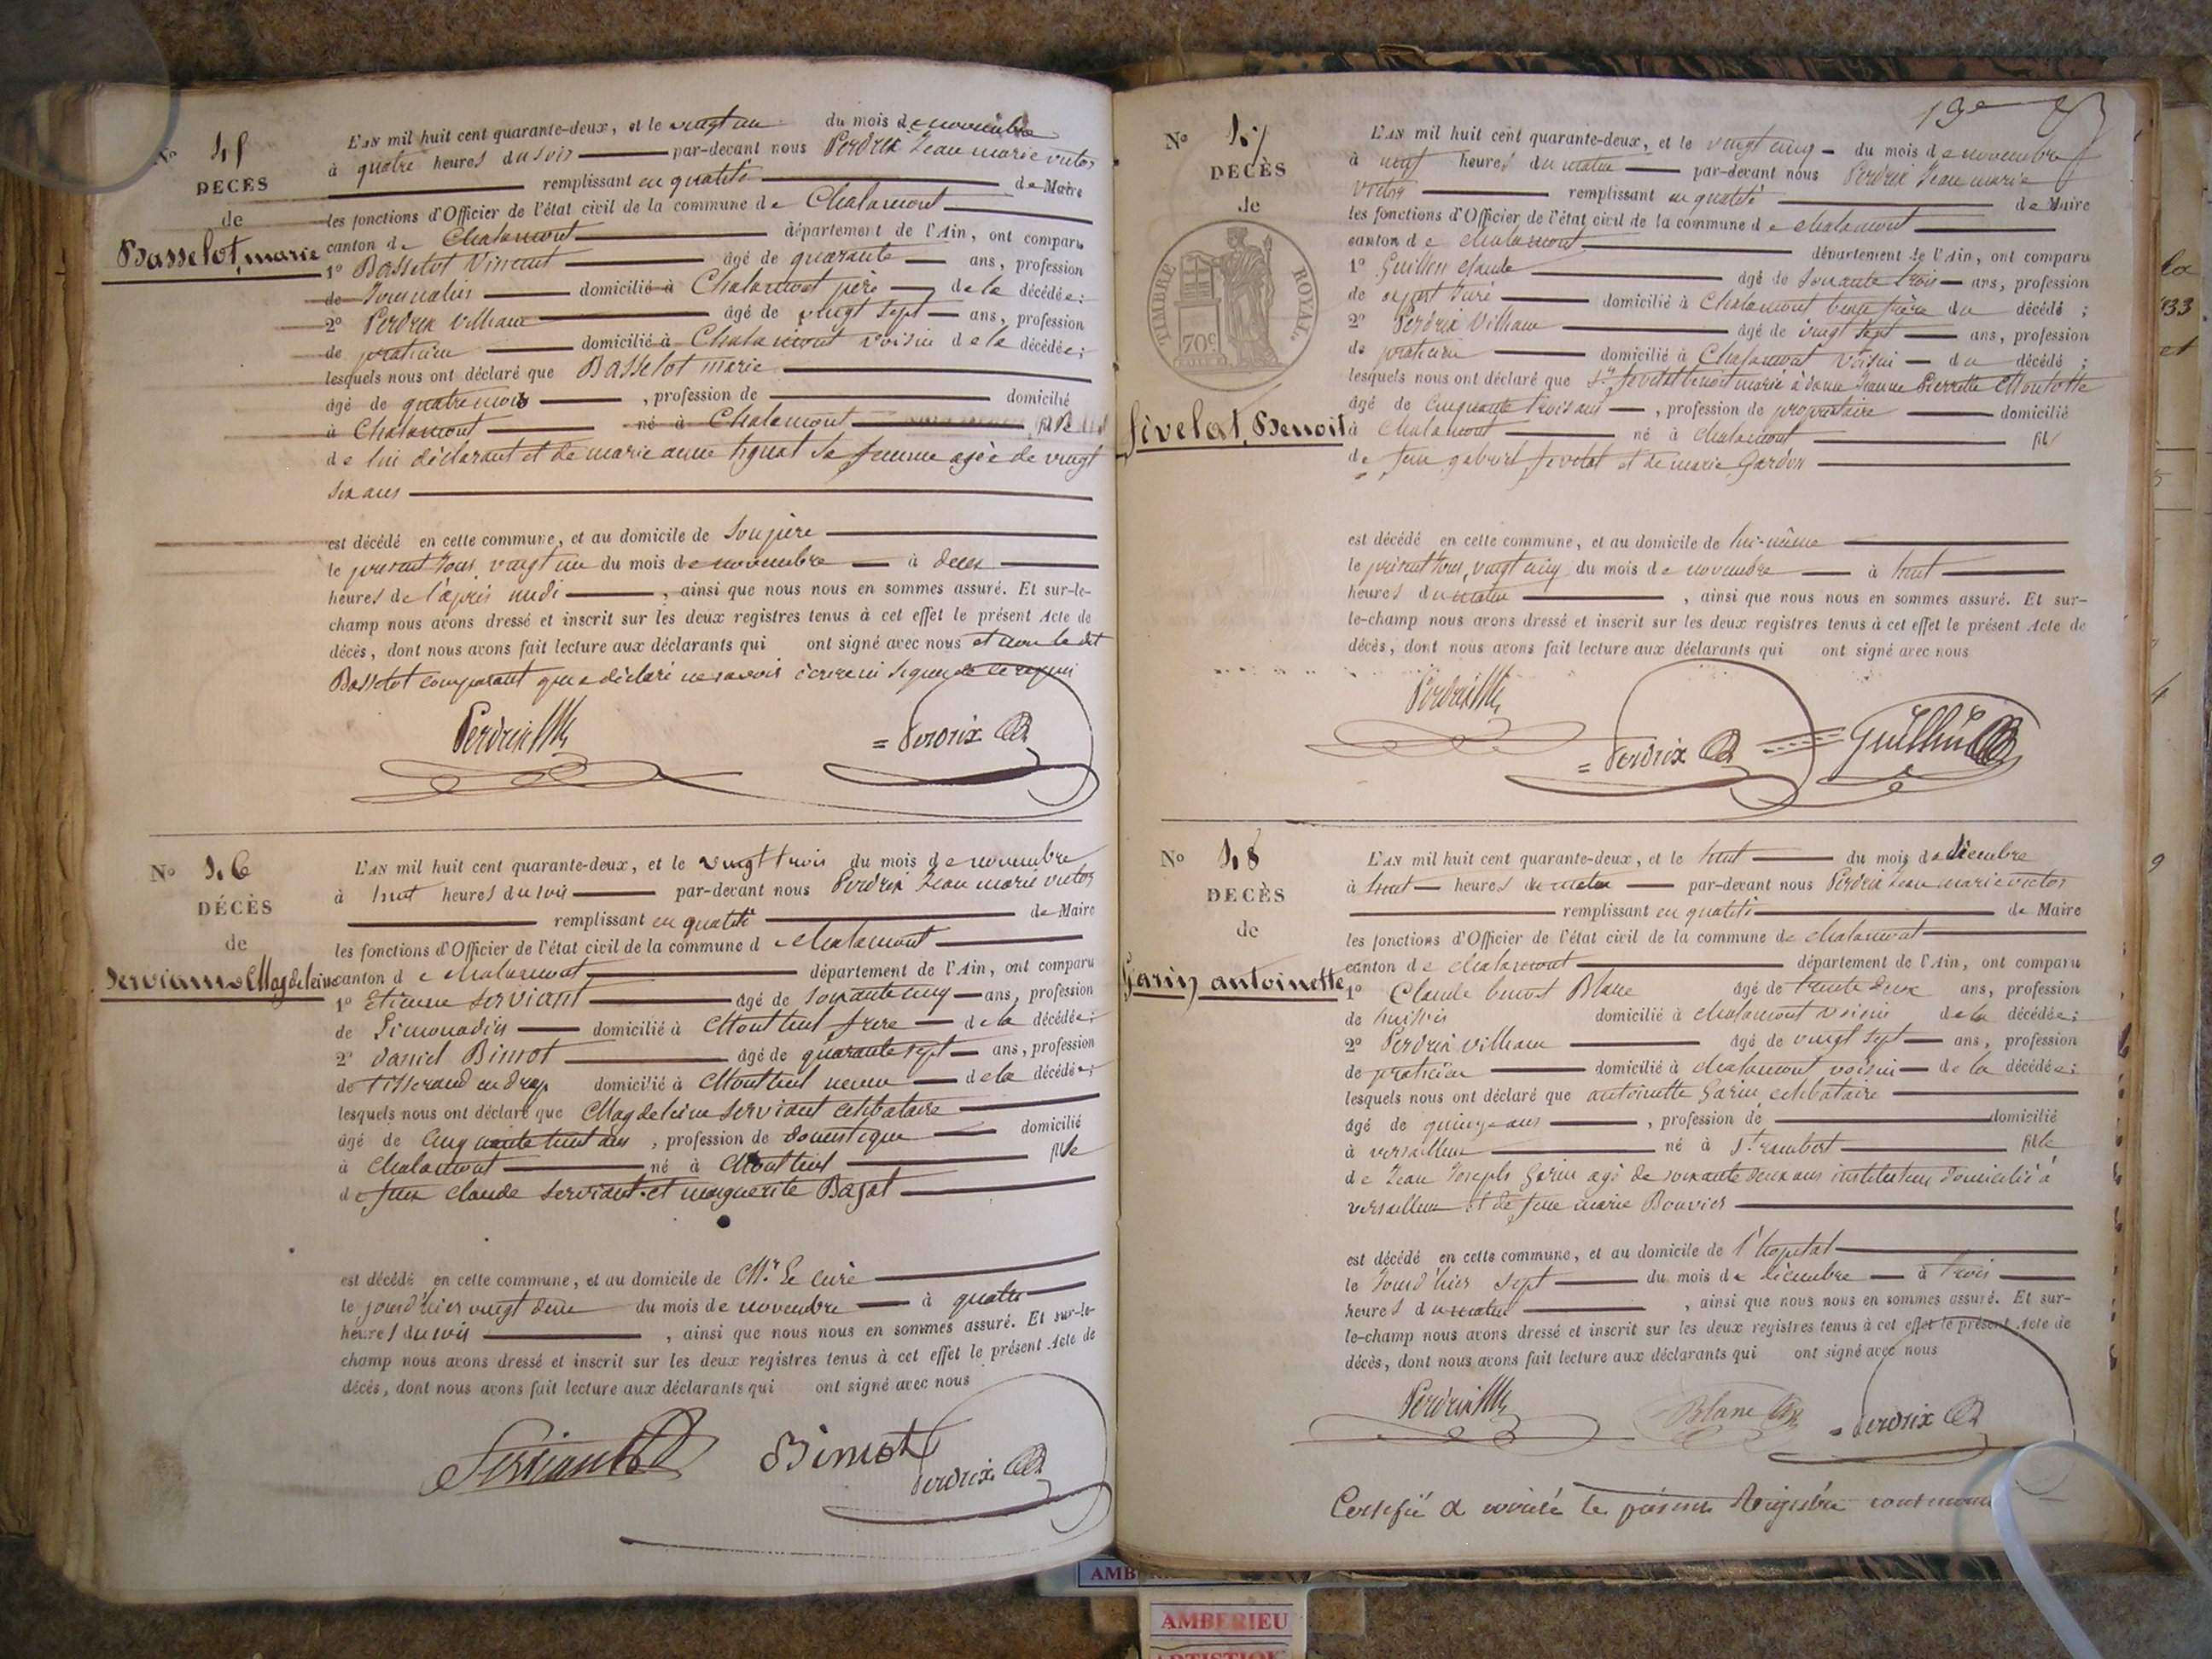 N° 45
DECÈS
de
Basselot, marie
L'AN mil huit cent quarante-deux, et le vingt un du mois de novembre
à quatre heures du soir par-devant nous Perdrix Jean marie victor
remplissant en qualité de Maire
les fonctions d'Officier de l'état civil de la commune de Chalamont
canton de Chalamont département de l'Ain, ont comparu
1° Basselot Vincent âgé de quarante ans, profession
de Journalier domicilié à Chalamont père de la décédée;
2° Perdrix Villiam âgé de vingt sept ans, profession
de praticien domicilié à Chalamont voisin de la décédée;
lesquels nous ont déclaré que Basselot marie
âgé de quatre mois, profession de domicilié
à Chalamont né à Chalamont fille
de lui déclarant et de marie anne sa femme agée de vingt
six ans
est décédé en cette commune, et au domicile de son père
le présent jour vingt un du mois de novembre à deux
heures de l'après midi, ainsi que nous nous en sommes assuré. Et sur-le-
champ nous avons dressé et inscrit sur les deux registres tenus à cet effet le présent Acte de
décès, dont nous avons fait lecture aux déclarants qui ont signé avec nous et non le dit
Basselot comparant qui a déclaré ne savoir écrire ni signer de ce requis
Perdrix
= Perdrix
N° 46
DÉCÈS
de
Serviant Magdeleine
L'AN mil huit cent quarante-deux, et le vingt trois du mois de novembre
à huit heures du soir par-devant nous Perdrix Jean marie victor
remplissant en qualité de Maire
les fonctions d'Officier de l'état civil de la commune de chalamont
canton de chalamont département de l'Ain, ont comparu
1° Etienne Serviant âgé de soixante cinq ans, profession
de Limonadier domicilié à Montluel frere de la décédée;
2° Daniel Bimot âgé de quarante sept ans, profession
de tisserand en drap domicilié à Montluel neveu de la décédée;
lesquels nous ont déclaré que Magdeleine Serviant celibataire
âgé de cinquante huit ans, profession de domestique domicilié
à Chalamont né à Montluel fille
de feux claude Serviant et marguerite Bajat
est décédé en cette commune, et au domicile de Mr. Le curé
le jourd'hier vingt deux du mois de novembre à quatre
heures du soir, ainsi que nous nous en sommes assuré. Et sur-le-
champ nous avons dressé et inscrit sur les deux registres tenus à cet effet le présent Acte de
décès, dont nous avons fait lecture aux déclarants qui ont signé avec nous
Serviant
Bimot
Perdrix
19e
N° 47
DECÈS
de
TIMBRE ROYAL.
70c
fivelat, Benoit
L'AN mil huit cent quarante-deux, et le vingt cinq du mois de novembre
à neuf heures du matin par-devant nous Perdrix Jean marie
victor remplissant en qualité de Maire
les fonctions d'Officier de l'état civil de la commune de chalamont
canton de chalamont département de l'Ain, ont comparu
1° Guillin claude âgé de soixante trois ans, profession
de expert Juré domicilié à Chalamont beau frère du décédé;
2° Perdrix Villiam âgé de vingt sept ans, profession
de praticien domicilié à Chalamont voisin du décédé;
lesquels nous ont déclaré que Sr. fivelat benoit marié à dame Jeanne Pierrette
âgé de cinquante trois ans, profession de propriétaire domicilié
à Chalamont né à chalamont fils
de feu gabriel fivelat et de marie Gardon
est décédé en cette commune, et au domicile de lui-même
le présent jour, vingt cinq du mois de novembre à huit
heures du matin, ainsi que nous nous en sommes assuré. Et sur-
le-champ nous avons dressé et inscrit sur les deux registres tenus à cet effet le présent Acte de
décès, dont nous avons fait lecture aux déclarants qui ont signé avec nous
Perdrix
= Perdrix
Guillin
N° 48
DECÈS
de
Garin antoinette
L'AN mil huit cent quarante-deux, et le huit du mois de décembre
à huit heures du matin par-devant nous Perdrix Jean marie victor
remplissant en qualité de Maire
les fonctions d'Officier de l'état civil de la commune de chalamont
canton de chalamont département de l'Ain, ont comparu
1° Claude benoit Blanc âgé de trente deux ans, profession
de huissier domicilié à chalamont voisin de la décédée;
2° Perdrix villiam âgé de vingt sept ans, profession
de praticien domicilié à chalamont voisin de la décédée;
lesquels nous ont déclaré que antoinette Garin celibataire
âgé de quinze ans, profession de domicilié
à versailleux né à St. rambert fille
de Jean Joseph Garin agé de soixante deux ans instituteur domicilié à
versailleux et de feue marie Bouvier
est décédé en cette commune, et au domicile de l'hopital
le Jourd'hier sept du mois de décembre à trois
heures du matin, ainsi que nous nous en sommes assuré. Et sur-
le-champ nous avons dressé et inscrit sur les deux registres tenus à cet effet le présent Acte de
décès, dont nous avons fait lecture aux déclarants qui ont signé avec nous
Perdrix
Blanc
= Perdrix
Certifié le présent Régistre contenant
AMBERIEU